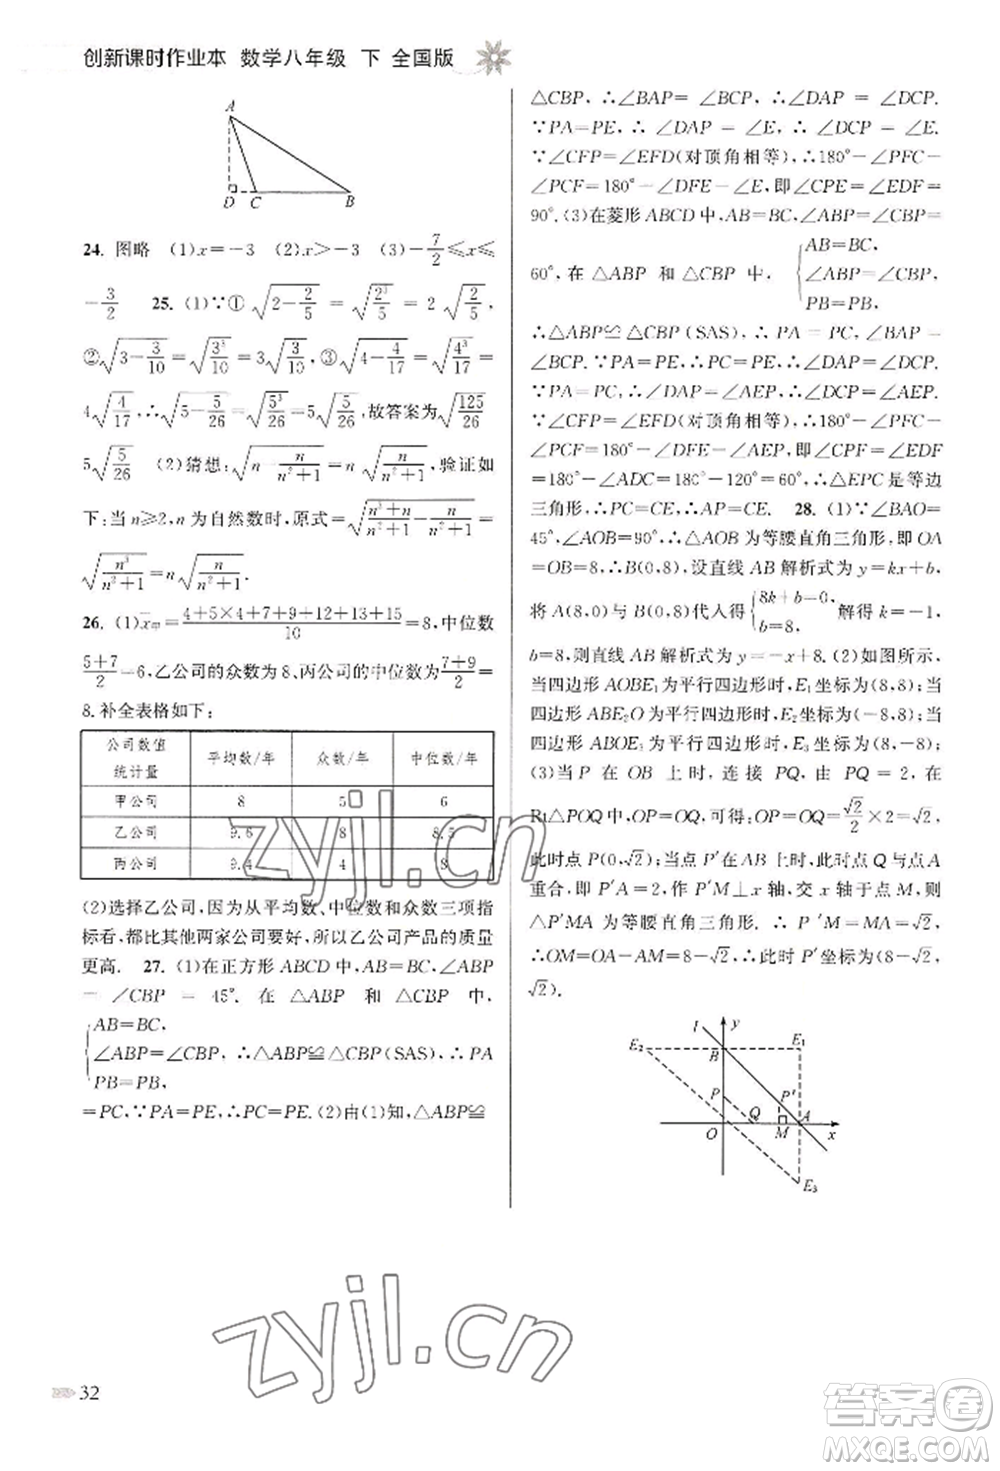 创新课时作业本 数学八年级 下 全国版
A
D C B
24. 图略 (1)x=-3 (2)x>-3 (3)-7/2≤x≤
-3/2 25. (1)∵①√(2-2/5)=√(2³/5)=2√(2/5),
②√(3-3/10)=√(3³/10)=3√(3/10),③√(4-4/17)=√(4³/17)=
4√(4/17),∴√(5-5/26)=√(5³/26)=5√(5/26),故答案为√(125/26)=
5√(5/26) (2)猜想:√(n-n/(n²+1))=n√(n/(n²+1)),验证如
下:当n≥2,n为自然数时,原式=√((n³+n)/(n²+1)-n/(n²+1))=
√(n³/(n²+1))=n√(n/(n²+1)).
26. (1)x̄甲=(4+5×4+7+9+12+13+15)/10=8,中位数
(5+7)/2=6,乙公司的众数为8,丙公司的中位数为(7+9)/2=
8.补全表格如下:
公司数值 统计量 平均数/年 众数/年 中位数/年
甲公司 8 5 6
乙公司 9.6 8 8.5
丙公司 9.4 4 8
(2)选择乙公司,因为从平均数、中位数和众数三项指
标看,都比其他两家公司要好,所以乙公司产品的质量
更高. 27. (1)在正方形ABCD中,AB=BC,∠ABP
=∠CBP=45°. 在 △ABP 和 △CBP 中,
{AB=BC,
∠ABP=∠CBP, ∴△ABP≌△CBP(SAS),∴PA
PB=PB,
=PC,∵PA=PE,∴PC=PE.(2)由(1)知,△ABP≌
△CBP,∴∠BAP=∠BCP,∴∠DAP=∠DCP.
∵PA=PE,∴∠DAP=∠E,∴∠DCP=∠E.
∵∠CFP=∠EFD(对顶角相等),∴180°-∠PFC-
∠PCF=180°-∠DFE-∠E,即∠CPE=∠EDF=
90°.(3)在菱形ABCD中,AB=BC,∠ABP=∠CBP=
60°,在 △ABP 和 △CBP 中, {AB=BC,
∠ABP=∠CBP,
PB=PB,
∴△ABP≌△CBP(SAS),∴PA=PC,∠BAP=
∠BCP.∵PA=PE,∴PC=PE,∴∠DAP=∠DCP.
∵PA=PC,∴∠DAP=∠AEP,∴∠DCP=∠AEP.
∵∠CFP=∠EFD(对顶角相等),∴180°-∠PFC-
∠PCF=180°-∠DFE-∠AEP,即∠CPE=∠EDF
=180°-∠ADC=180°-120°=60°,∴△EPC是等边
三角形,∴PC=CE,∴AP=CE. 28. (1)∵∠BAO=
45°,∠AOB=90°,∴△AOB为等腰直角三角形,即OA
=OB=8,∴B(0,8),设直线AB解析式为y=kx+b,
将A(8,0)与B(0,8)代入得{8k+b=0, b=8. 解得k=-1,
b=8,则直线AB解析式为y=-x+8.(2)如图所示,
当四边形AOBE₁为平行四边形时,E₁坐标为(8,8);当
四边形ABE₂O为平行四边形时,E₂坐标为(-8,8);当
四边形ABOE₃为平行四边形时,E₃坐标为(8,-8).
(3)当 P 在 OB 上时,连接 PQ,∵PQ=2,在
Rt△POQ中,OP=OQ,可得:OP=OQ=√2/2×2=√2,
此时点P(0,√2);当点P′在AB上时,此时点Q与点A
重合,即P′A=2,作P′M⊥x轴,交x轴于点M,则
△P′MA为等腰直角三角形.∴P′M=MA=√2,
∴OM=OA-AM=8-√2,∴此时点P′坐标为(8-√2,
√2).
l y
E₂ B E₁
P P′
Q A
O M x
E₃
zyjl.cn
zyjl.cn
32
答案圈
MXQE.COM